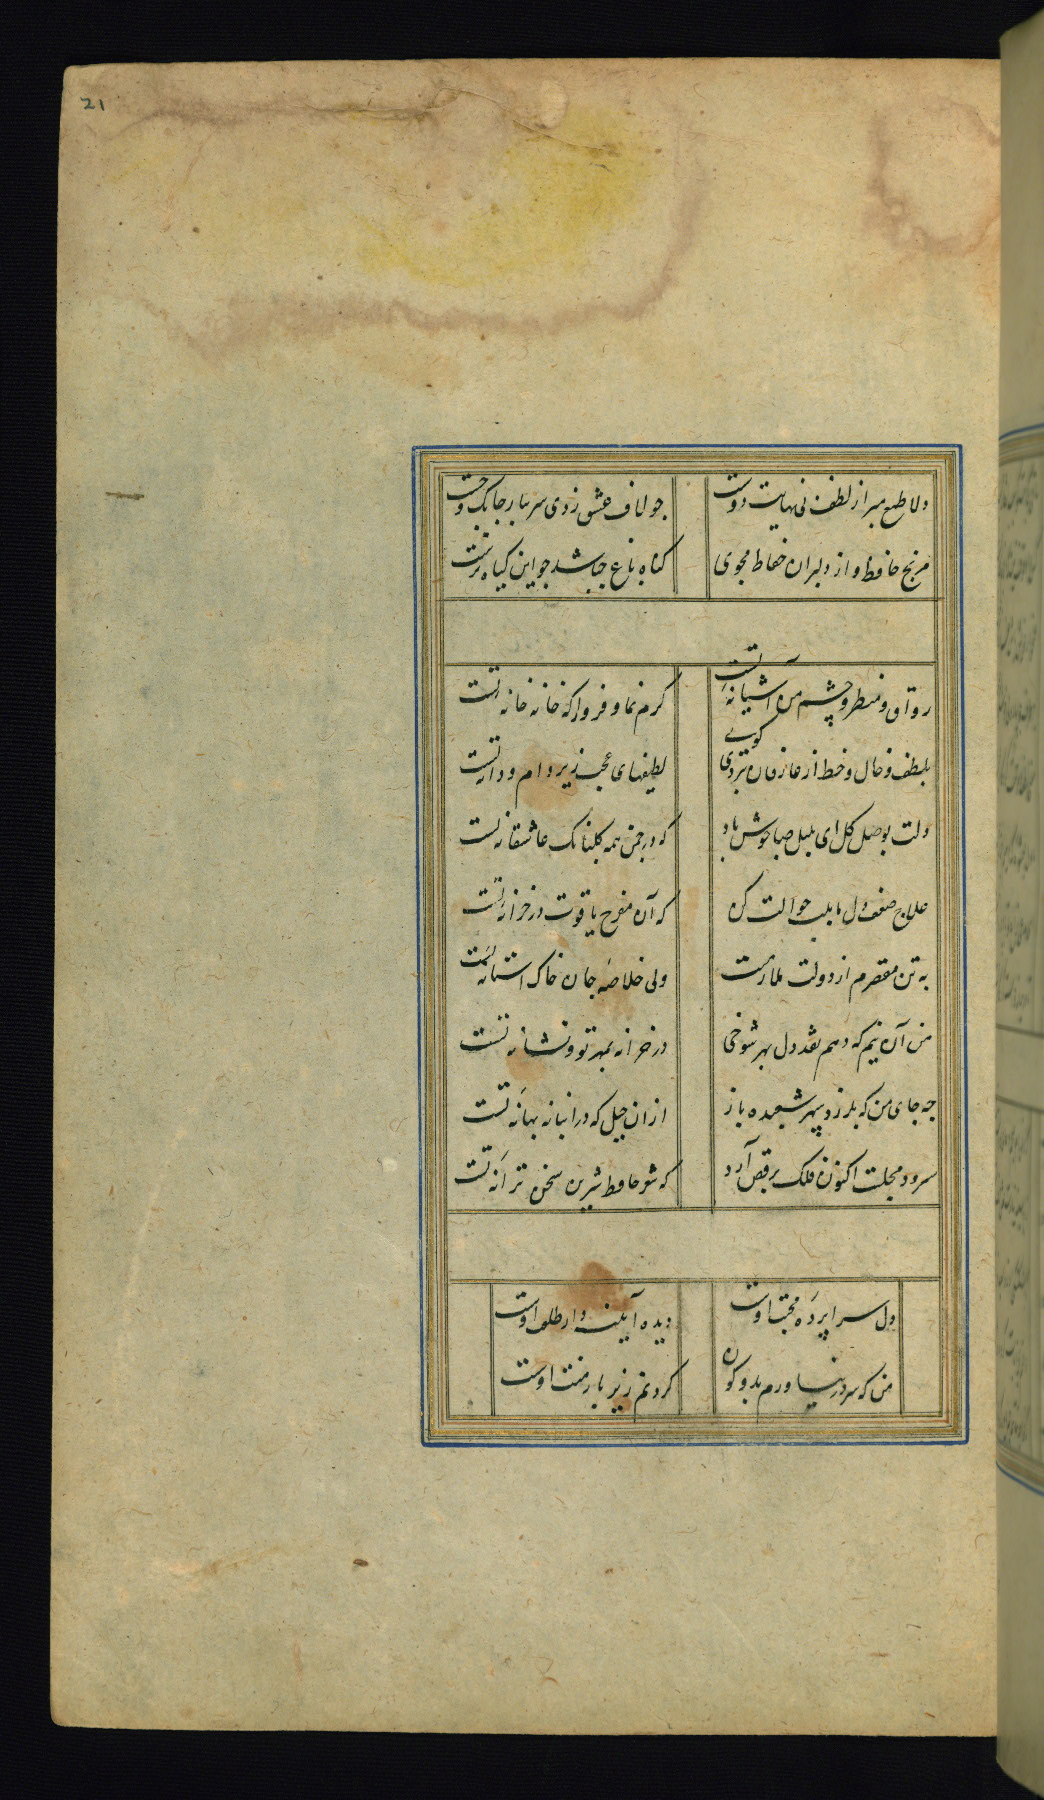 21
دلا طمع مبر از لطف بی نهایت دوست
چو لاف عشق زدی سر بباز چابک و چست
مرنج حافظ و از دلبران حفاظ مجوی
کناه باغ چه باشد چو این کیاه نرست
رواق و منظر و چشم من آشیانه تست
کرم نما و فرود آ که خانه خانه تست
بلطف و خال و خط از عارفان ببردی کوی
لطیفهای عجب زیر دام و دانه تست
دلت بوصل کل ای بلبل صبا خوش باد
که در چمن همه کلبانک عاشقانه تست
علاج ضعف دل ما بلب حوالت کن
که آن مفرح یاقوت در خزانه تست
به تن مقصرم از دولت ملازمت
ولی خلاصه جان خاک استانه تست
من آن نیم که دهم نقد دل بهر شوخی
در خزانه بمهر تو و نشانه تست
چه جای من که بلرزد سپهر شعبده باز
ازان حیل که در انبانه بهانه تست
سرود مجلست اکنون فلک برقص آرد
که شعر حافظ شیرین سخن ترانه تست
دل سراپرده محبت اوست
دیده آینه دار طلعت اوست
من که سر در نیاورم بدو کون
کردنم زیر بار منت اوست